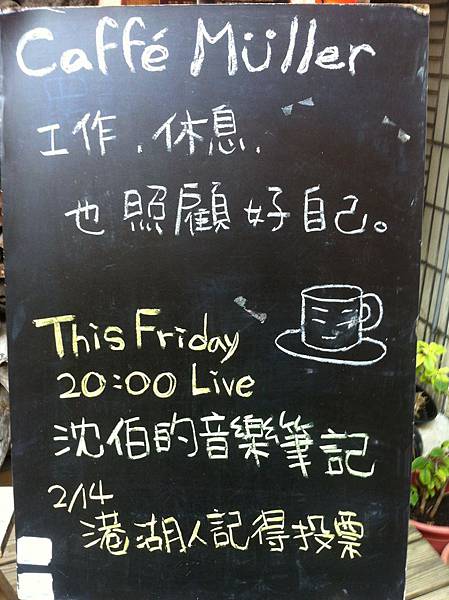 Caffé Müller
工作.休息.
也照顧好自己。
This Friday
20:00 Live
沈伯的音樂筆記
2/14
港湖人記得投票